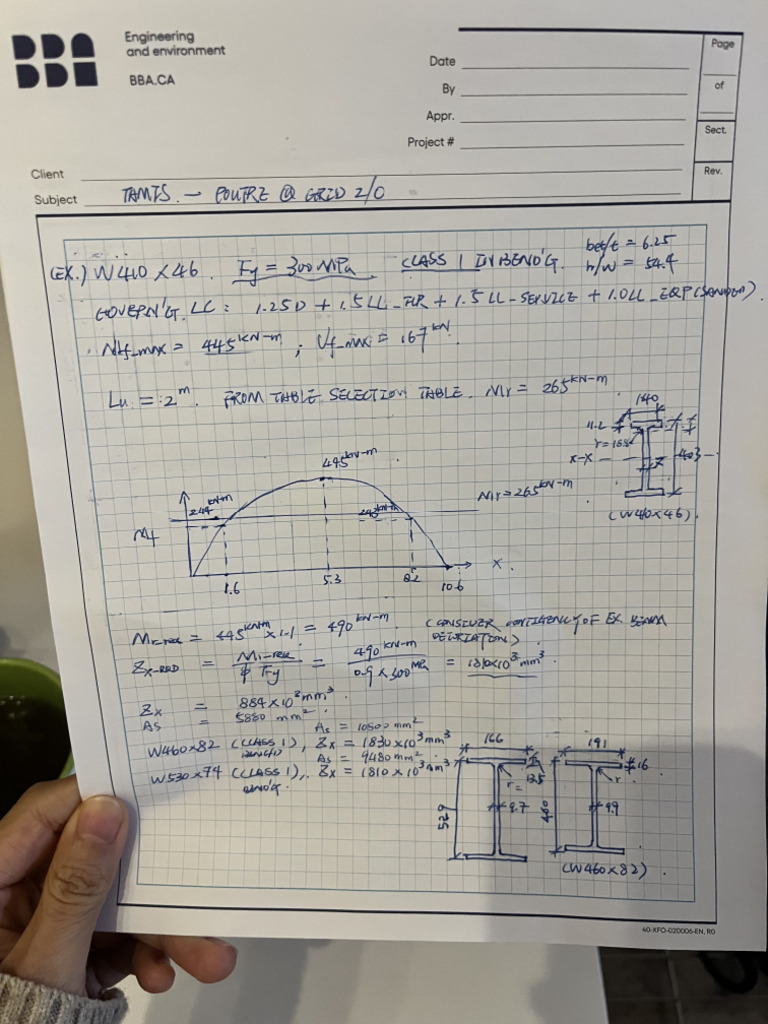 Engineering
and environment
BBA.CA
Date
By
Appr.
Project #
Page
of
Sect.
Rev.
Client
Subject TAMIS. — POUTRE @ GRID 2/0
(EX.) W410 x 46. Fy = 300 MPa. CLASS 1 IN BEND'G.
bel/t = 6.25
h/w = 54.4
GOVERN'G. LC: 1.25D + 1.5LL_FLR + 1.5 LL-SERVICE + 1.0LL_EQP
Mf_max = 445 kN-m ; Vf_max = 167 kN.
Lu = 2 m. FROM TABLE SELECTION TABLE. Mr = 265 kN-m
140
11.2
x-x
403
(W410x46).
445 kN-m
244 kN-m
Mr = 265 kN-m
Mf
x.
1.6
5.3
8.2
10.6
Mr-rec = 445 kN-m x 1.1 = 490 kN-m. (CONSIDER CONTINGENCY OF EX. BEAM
Zx-RQD = Mr-rec / φ Fy = 490 kN-m / 0.9 x 300 MPa = 1810x10³ mm³
Zx = 884 x 10³ mm³.
As = 5880 mm².
As = 10500 mm²
W460x82 (CLASS 1), Zx = 1830 x 10³ mm³
As = 9480 mm².
W530x74 (CLASS 1), Zx = 1810 x 10³ mm³
166
529
r =
13.5
9.7
191
16
460
r
9.9
(W460x82).
40-XFO-020006-EN, R0